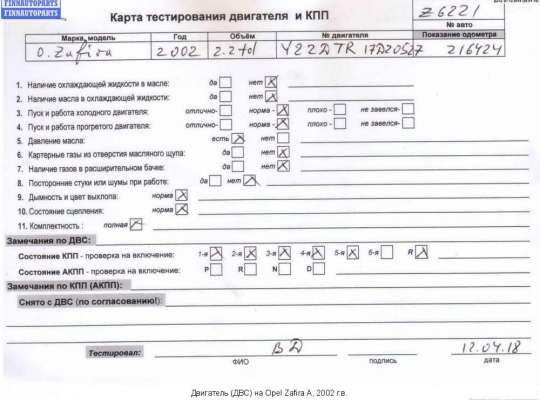 FINNAUTOPARTS
FINNAUTOPARTS
Карта тестирования двигателя и КПП
Z6221
№ авто
Марка, модель Год Объём № двигателя Показание одометра
O. Zafira 2002 2.2 tdl Y22DTR 17D20527 216424
1. Наличие охлаждающей жидкости в масле: да нет
2. Наличие масла в охлаждающей жидкости: да нет
3. Пуск и работа холодного двигателя: отлично- норма - плохо - не завелся-
4. Пуск и работа прогретого двигателя: отлично- норма - плохо - не завелся-
5. Давление масла: есть нет
6. Картерные газы из отверстия масляного щупа: да нет
7. Наличие газов в расширительном бачке: да нет
8. Посторонние стуки или шумы при работе: да нет
9. Дымность и цвет выхлопа: норма
10. Состояние сцепления: норма
11. Комплектность : полная
Замечания по ДВС:
Состояние КПП - проверка на включение: 1-я 2-я 3-я 4-я 5-я 6-я R
Состояние АКПП - проверка на включение: P R N D
Замечания по КПП (АКПП):
Снято с ДВС (по согласованию!):
Тестировал: ВД 12.04.18
ФИО подпись дата
Двигатель (ДВС) на Opel Zafira A, 2002 г.в.